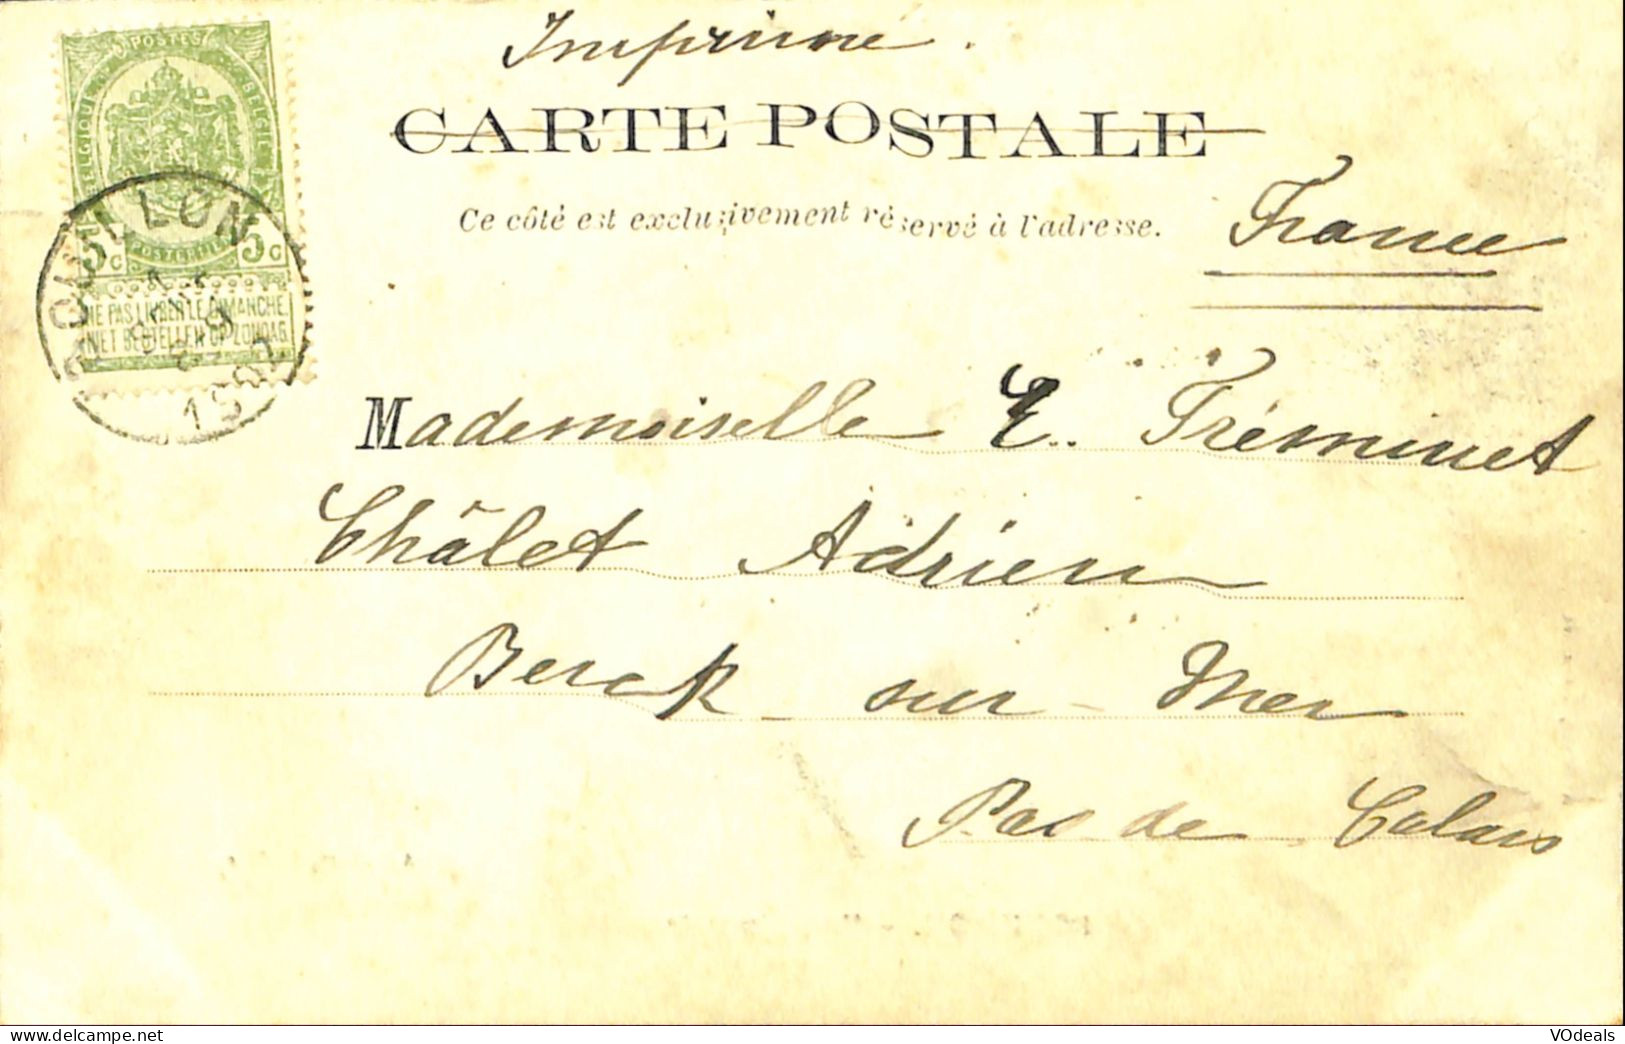 Imprimé.
CARTE POSTALE
Ce côté est exclusivement réservé à l'adresse.
France
POSTES
BELGIQUE BELGIË
POSTERIJEN
5 c 5 c
NE PAS LIVRER LE DIMANCHE
NIET BESTELLEN OP ZONDAG
BOUILLON
1902
Mademoiselle E. Tréminet
Châlet Adrien
Berck sur Mer
Pas de Calais
VOdeals